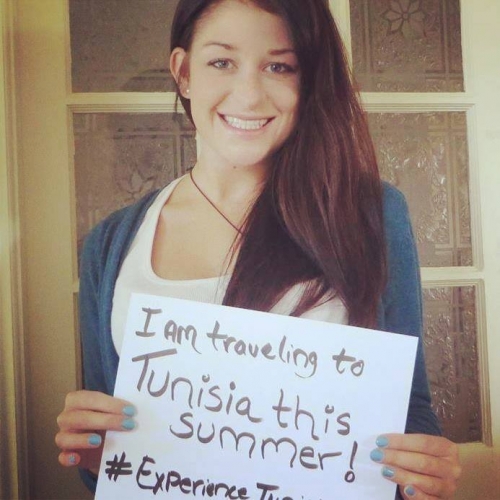 I AM traveling to
Tunisia this
summer!
#Experience